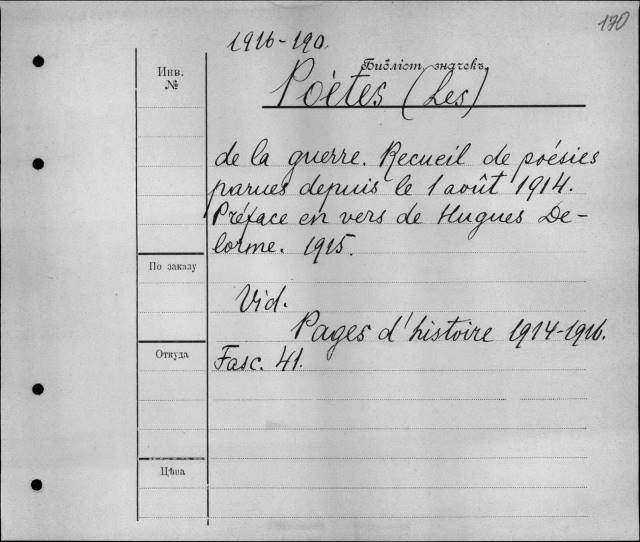 170
1916-190.
Инв.
№
Библіот. значекъ
Poètes (Les)
de la guerre. Recueil de poésies
parues depuis le 1 août 1914.
Préface en vers de Hugues De-
lorme. 1915.
По заказу
Vid.
Pages d'histoire 1914-1916.
Откуда
Fasc. 41.
Цѣна